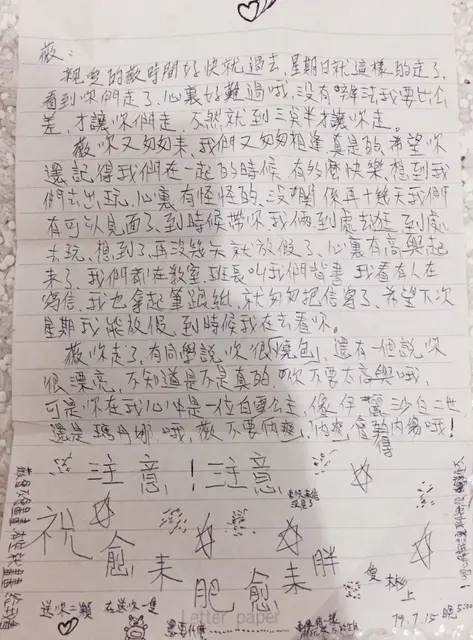 薇：
親愛的薇時間好快就過去，星期日就這樣的走了，
看到妳們走了，心裏好難過哦，沒有辦法我要比公
差，才讓妳們走，不然就到三分半才讓妳走。
薇妳又匆匆來，我們又匆匆相逢，真是的，希望妳
還記得我們在一起的時候，有多麼快樂，想到我
們去出玩，心裏有怪怪的，沒關係再十幾天我們
有可以見面了，到時候帶妳我倆到處去逛，到處
去玩，想到了，再沒幾天就放假了，心裏有高興起
來了，我們都在教室，班長叫我們看書，我看有人在
寫信，我也拿起筆跟紙，就匆匆把信寫了，希望下次
星期我能放假，到時候我在去看妳。
薇妳走了，有同學說妳很「燒包」，還有一個說妳
很漂亮，不知道是不是真的，妳不要太高興哦，
可是妳在我心中是一位白雪公主，像伊麗沙白二世
還是瑪丹娜哦，薇不要內爽，內爽會得內傷哦！
注意！注意
祝 愈來肥愈來胖
送妳二顆 在送妳一隻
愛
上
79.7.15 晚 5:00
Letter paper